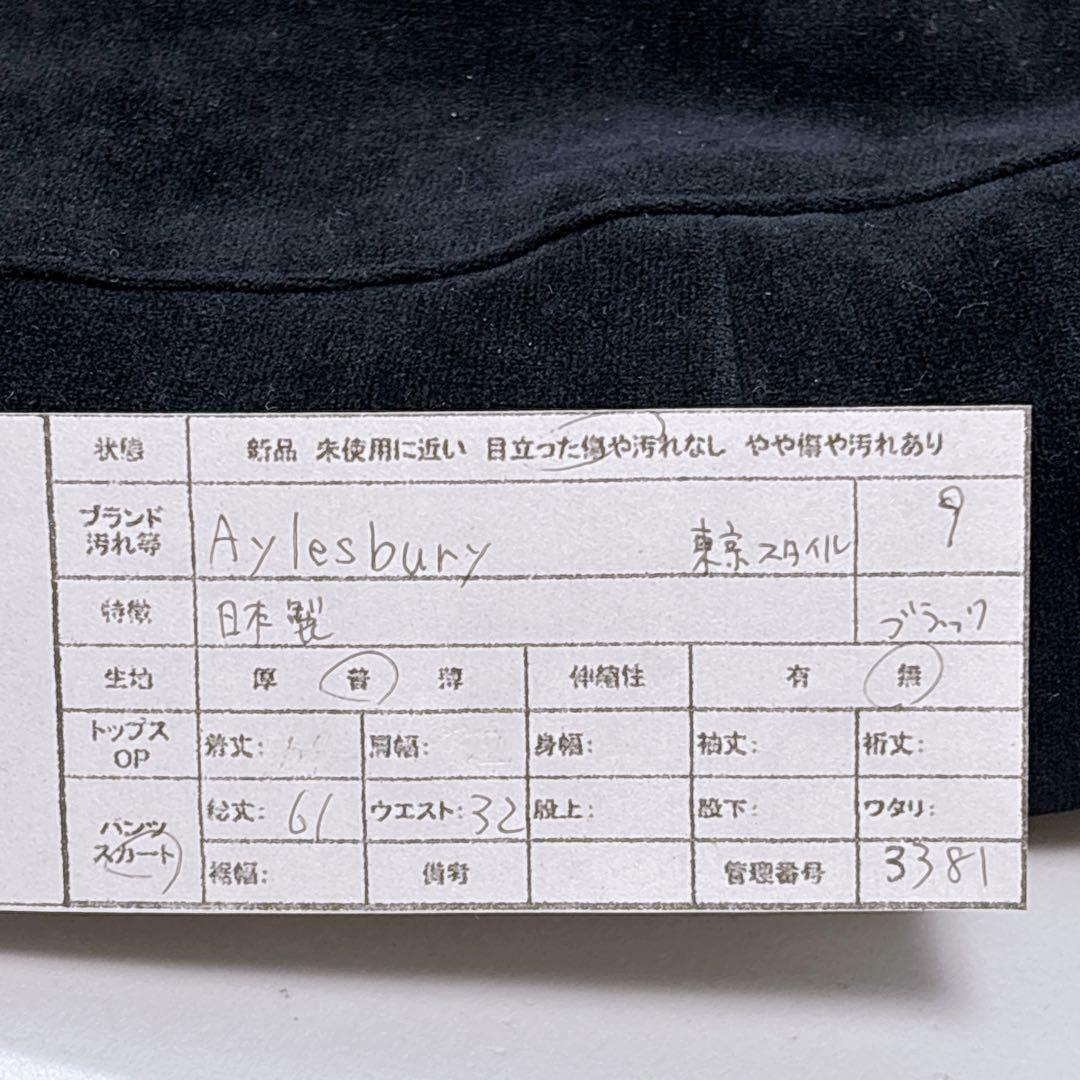 状態 新品 未使用に近い 目立った傷や汚れなし やや傷や汚れあり
ブランド
汚れ等 Aylesbury 東京スタイル 9
特徴 日本製 ブラック
生地 厚 普 薄 伸縮性 有 無
トップス
OP 着丈: 肩幅: 身幅: 袖丈: 裄丈:
パンツ
スカート 総丈: 61 ウエスト: 32 股上: 股下: ワタリ:
裾幅: 備考 管理番号 3381